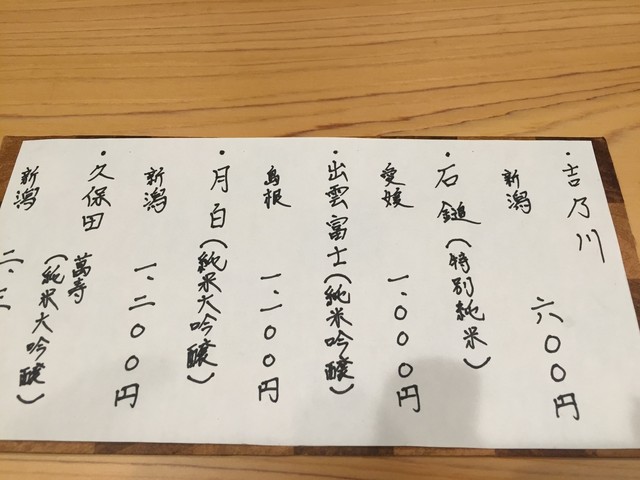 ・吉乃川
新潟 六〇〇円
・石鎚(特別純米)
愛媛 一、〇〇〇円
・出雲富士(純米吟醸)
島根 一、一〇〇円
・月白(純米大吟醸)
新潟 一、二〇〇円
・久保田 萬寿
(純米大吟醸)
新潟 二、三